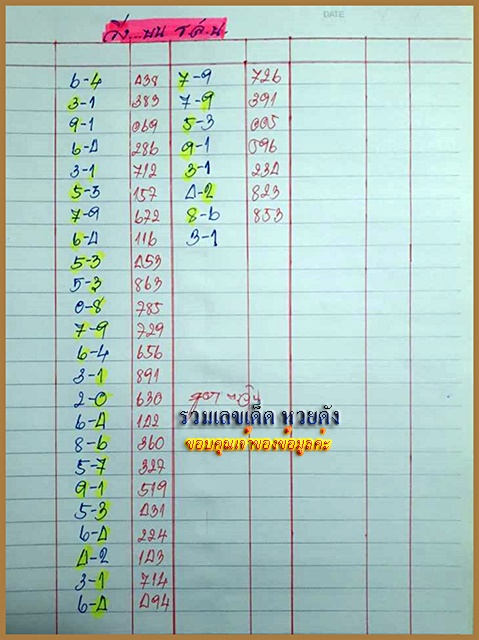 DATE
วิ่ง...บน
6-4 438 7-9 726
3-1 383 7-9 391
9-1 069 5-3 005
6-4 286 9-1 096
3-1 712 3-1 234
5-3 157 4-2 823
7-9 672 8-6 853
6-4 116 3-1
5-3 453
5-3 863
0-8 785
7-9 729
6-4 656
3-1 891
2-0 630
รวมเลขเด็ด หวยดัง
6-4 142
8-6 360
ขอบคุณเจ้าของข้อมูลค่ะ
5-7 327
9-1 519
5-3 431
6-4 224
4-2 143
3-1 714
6-4 494